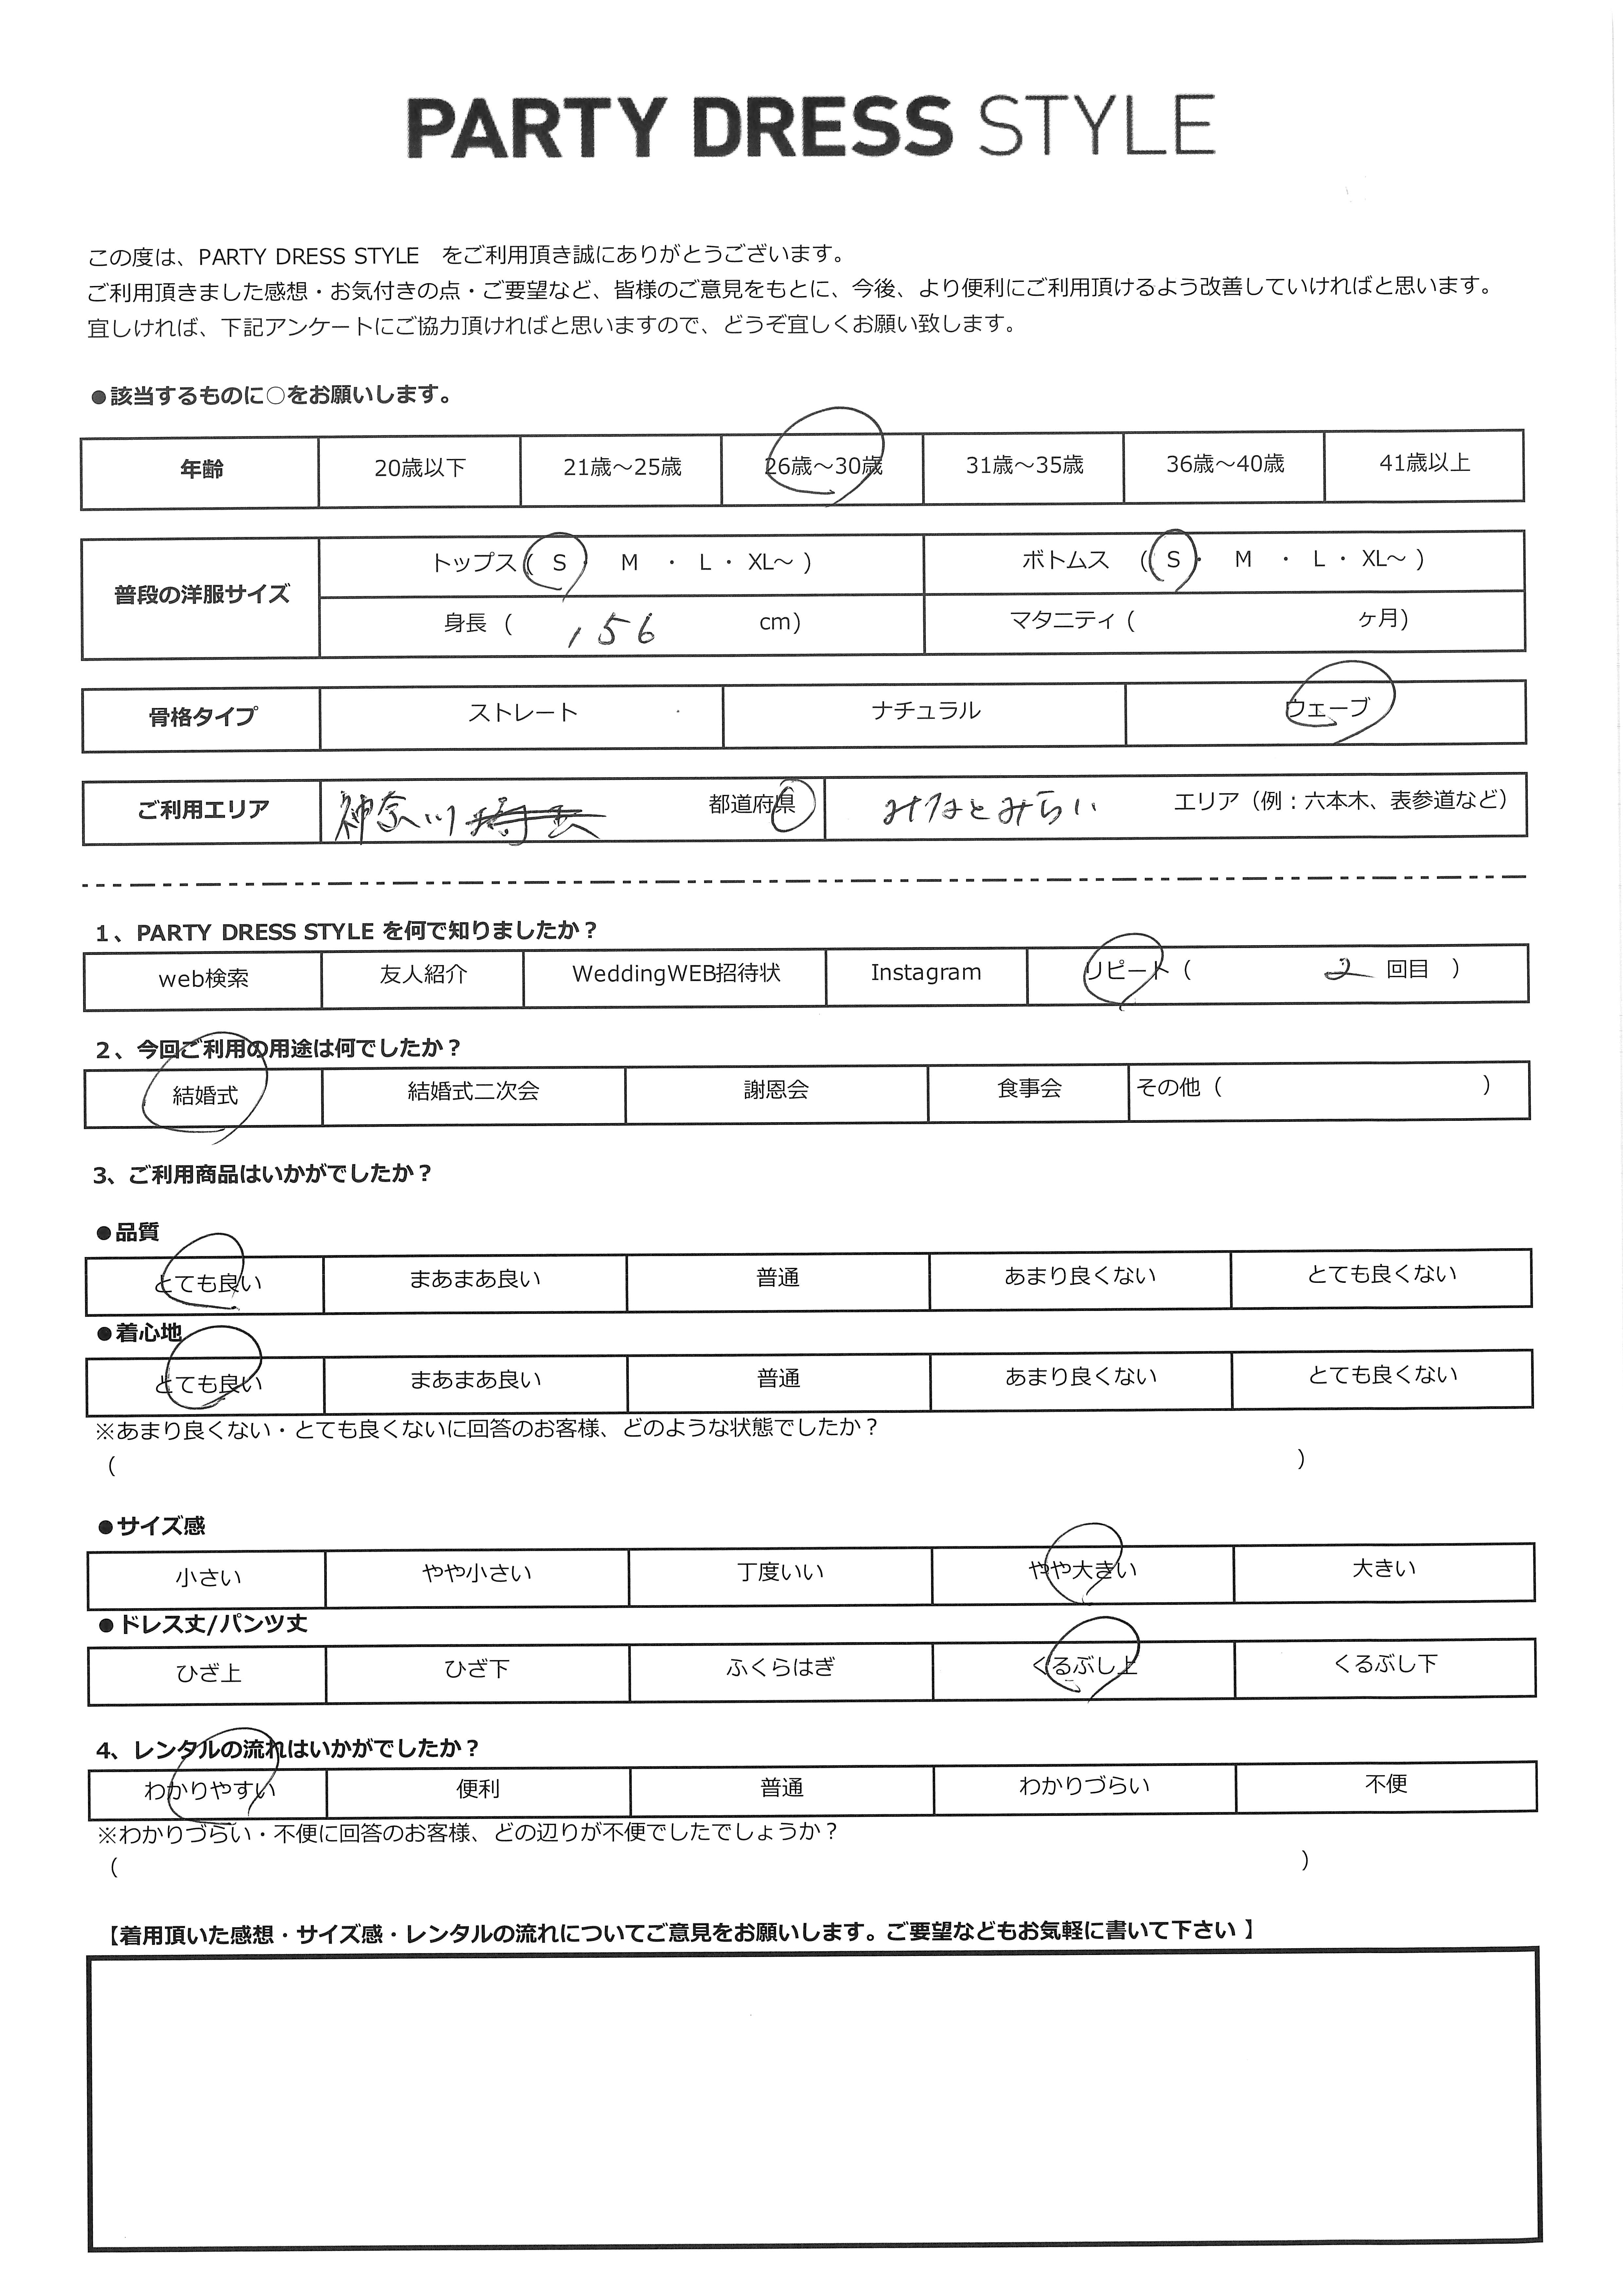 PARTY DRESS STYLE
この度は、PARTY DRESS STYLE　をご利用頂き誠にありがとうございます。
ご利用頂きました感想・お気付きの点・ご要望など、皆様のご意見をもとに、今後、より便利にご利用頂けるよう改善していければと思います。
宜しければ、下記アンケートにご協力頂ければと思いますので、どうぞ宜しくお願い致します。
●該当するものに○をお願いします。
年齢 20歳以下 21歳～25歳 26歳～30歳 31歳～35歳 36歳～40歳 41歳以上
普段の洋服サイズ トップス( S ・ M ・ L ・ XL～ ) ボトムス ( S ・ M ・ L ・ XL～ )
身長 ( 156 cm) マタニティ ( ヶ月)
骨格タイプ ストレート ナチュラル ウェーブ
ご利用エリア 神奈川 都道府県 みなとみらい エリア（例：六本木、表参道など）
1、PARTY DRESS STYLE を何で知りましたか？
web検索 友人紹介 WeddingWEB招待状 Instagram リピート ( 2 回目 )
2、今回ご利用の用途は何でしたか？
結婚式 結婚式二次会 謝恩会 食事会 その他 ( )
3、ご利用商品はいかがでしたか？
●品質
とても良い まあまあ良い 普通 あまり良くない とても良くない
●着心地
とても良い まあまあ良い 普通 あまり良くない とても良くない
※あまり良くない・とても良くないに回答のお客様、どのような状態でしたか？
( )
●サイズ感
小さい やや小さい 丁度いい やや大きい 大きい
●ドレス丈/パンツ丈
ひざ上 ひざ下 ふくらはぎ くるぶし上 くるぶし下
4、レンタルの流れはいかがでしたか？
わかりやすい 便利 普通 わかりづらい 不便
※わかりづらい・不便に回答のお客様、どの辺りが不便でしたでしょうか？
( )
【着用頂いた感想・サイズ感・レンタルの流れについてご意見をお願いします。ご要望などもお気軽に書いて下さい 】